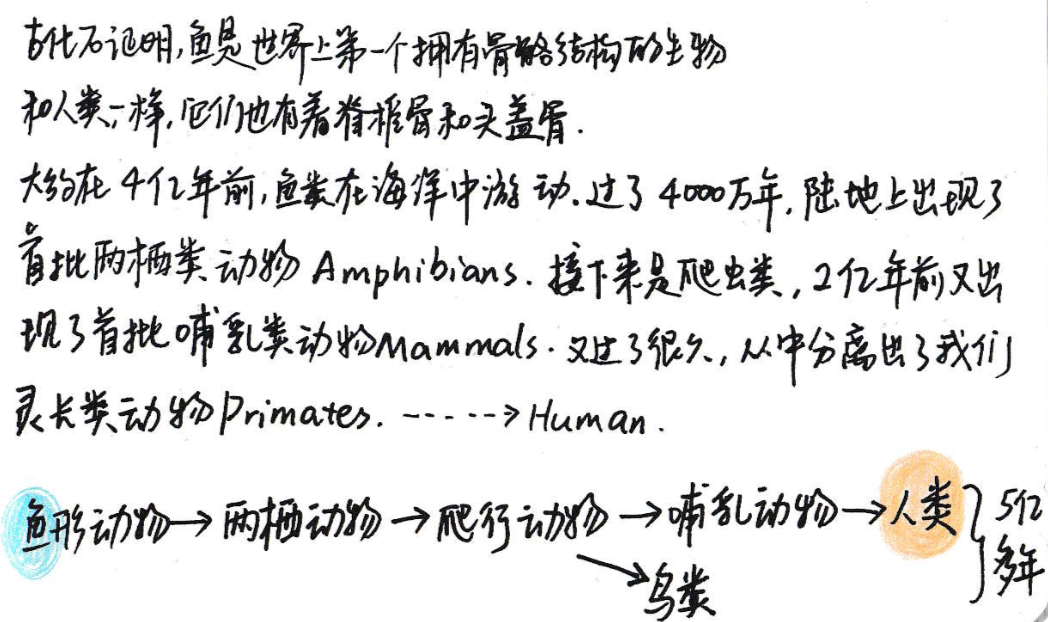 古化石证明,鱼是世界上第一个拥有骨骼结构的生物
和人类一样,它们也有着脊椎骨和头盖骨.
大约在4亿年前,鱼类在海洋中游动.过了4000万年,陆地上出现了
首批两栖类动物Amphibians.接下来是爬虫类,2亿年前又出
现了首批哺乳类动物Mammals.又过了很久,从中分离出了我们
灵长类动物Primates.----->Human.
鱼形动物→两栖动物→爬行动物→哺乳动物→人类}5亿多年
→鸟类